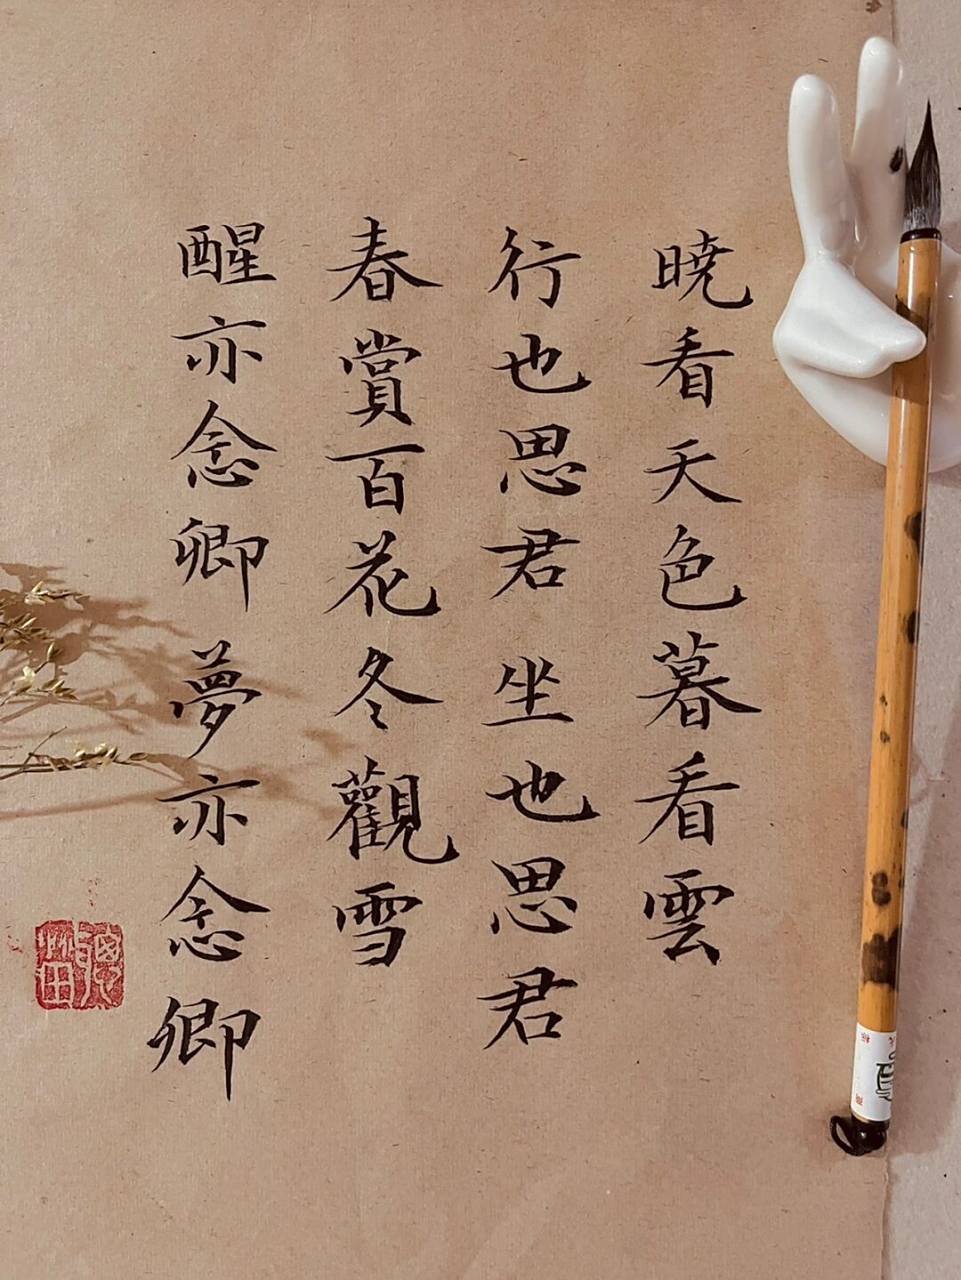 暁看天色暮看雲
行也思君坐也思君
春賞百花冬觀雪
醒亦念卿夢亦念卿